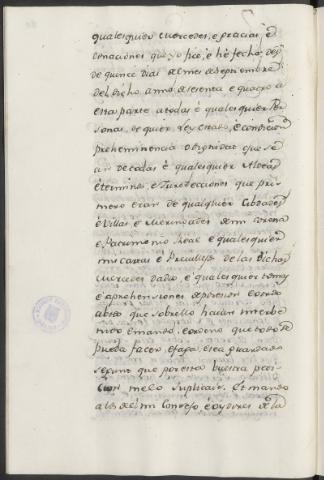 qualesquier mercedes, e gracias, e
donaciones que yo fice, e he fecho, desde
de quince dias del mes de septiembre
del dicho anno de setenta e quatro a
esta parte a todas e qualesquier Per
sonas, de quier Ley estado, e condicion
preheminencia o dignidad que sean
an de todas e qualesquier
e terminos, e Jurisdicciones que pri
mero eran de qualquier Cibdades
e Villas e Merindades de mi Corona
e Patrimonio Real e qualesquier
mis cartas e Previllejos de las dichas
Mercedes dadas e qualesquier
e aprehensiones de posesion
abtos que sobrello hayan interbe
nido e mando, e ordeno que todo se
pueda facer, e faga, e sea guardado
segunt que por esta buestra peti
cion me lo suplicais. Et mando
a los del mi Consejo e oydores de la